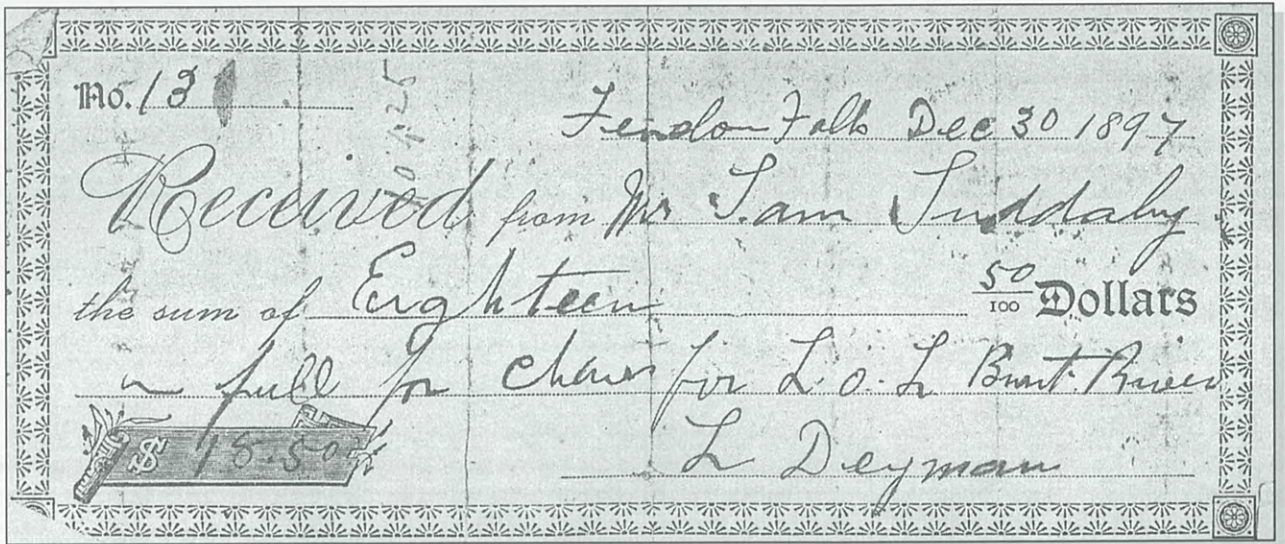 No. 13
Fenelon Falls Dec 30 1897
Received from Mr Sam Suddaby
the sum of Eighteen 50/100 Dollars
in full for chairs for L.O.L Burnt River
$ 18.50
L Deyman